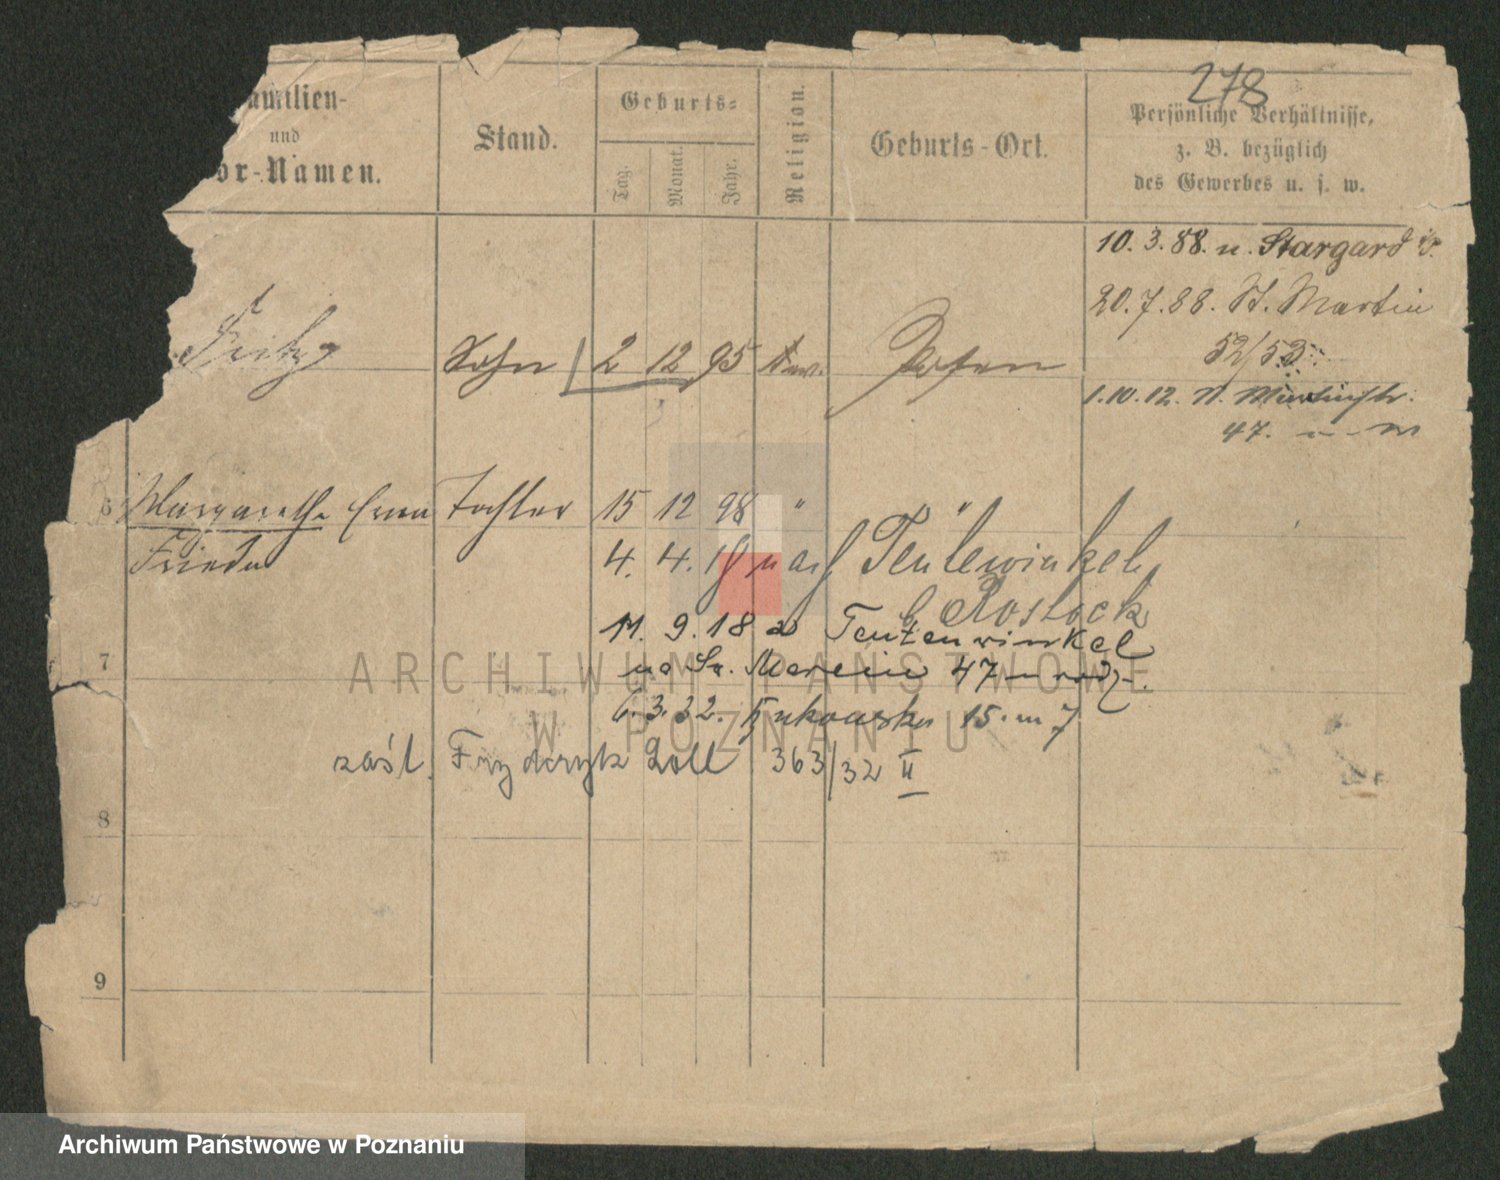 278
amilien-
und
or-Namen.
Stand.
Geburts-
Tag.
Monat.
Jahr.
Religion.
Geburts-Ort.
Persönliche Verhältnisse,
z. B. bezüglich
des Gewerbes u. s. w.
10. 3. 88. u. Stargard
20. 7. 88. St. Martin
52/53
Fritz Sohn 2 12 95 ev. Posen
1. 10. 12.
47.
6 Margarethe Erna Tochter 15 12 98 " "
Frieda
4. 4. 18 nach Teutewinkel
b Rostock
11. 9. 18 Teutenwinkel
7
na Sw. Marcin 47
6. 3. 32. 15. m 7
zaśl. Fryderyk Doll 363/32 II
8
9
ARCHIWUM PAŃSTWOWE
W POZNANIU
Archiwum Państwowe w Poznaniu